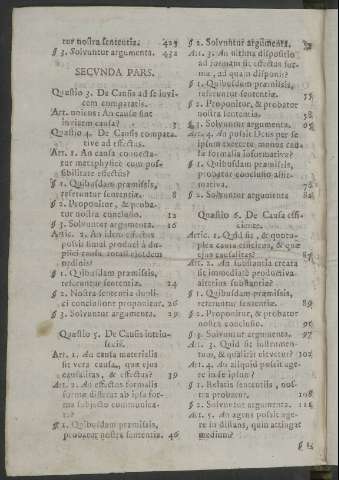 tur nostra sententia. 423
§ 3. Solvuntur argumenta. 432
SECVNDA PARS.
Quæstio 3. De Causis ad se invi-
cem comparatis.
Art. unicus: An causæ sint
invicem causæ? 3
Quæstio 4. De Causis compara-
tive ad effectus.
Art. 1. An causa connecta-
tur metaphysicè cum possi-
bilitate effectus?
§ 1. Quibusdam præmissis,
referuntur sententiæ. 8
§ 2. Proponitur, & proba-
tur nostra conclusio. 12
§ 3. Solvuntur argumenta. 16
Artic. 2. An idem effectus
possit simul produci à du-
plici causa totali ejusdem
ordinis?
§ 1. Quibusdam præmissis,
referuntur sententiæ. 24
§ 2. Nostra sententia dupli-
ci conclusione proponitur. 26
§ 3. Solvuntur argumenta. 29
Quæstio 5. De Causis intrin-
secis.
Art. 1. An causa materialis
sit vera causa, quæ ejus
causalitas, & effectus? 39
Art. 2. An effectus formalis
formæ differat ab ipsa for-
ma subjecto communica-
ta?
§ 1. Quibusdam præmissis,
probatur nostra sententia. 46
§ 2. Solvuntur argumenta.
Art. 3. An ultima dispositio
ad formam sit effectus for-
mæ, ad quam disponit?
§ 1. Quibusdam præmissis,
referuntur sententiæ. 55
§ 2. Proponitur, & probatur
nostra sententia. 58
§ 3. Solvuntur argumenta. 65
Art. 4. An possit Deus per se
ipsum exercere munus cau-
sæ formalis informativæ?
§ 1. Quibusdam præmissis,
probatur conclusio affir-
mativa. 78
§ 2. Solvuntur argumenta 82
Quæstio 6. De Causa effi-
ciente.
Artic. 1. Quid sit, & quotu-
plex causa efficiens, & quæ
ejus causalitas? 85
Art. 2. An substantia creata
sit immediatè productiva
alterius substantiæ?
§ 1. Quibusdam præmissis,
referuntur sententiæ. 89
§ 2. Proponitur, & probatur
nostra conclusio. 96
§ 3. Solvuntur argumenta. 97
Art. 3. Quid sit instrumen-
tum, & qualiter elevetur? 102
Art. 4. An aliquid possit age-
re in se ipsum?
§ 1. Relatis sententiis, nos-
tra probatur. 108
§ 2. Solvuntur argumenta. 111
Art. 5. An agens possit age-
re in distans, quin attingat
medium?